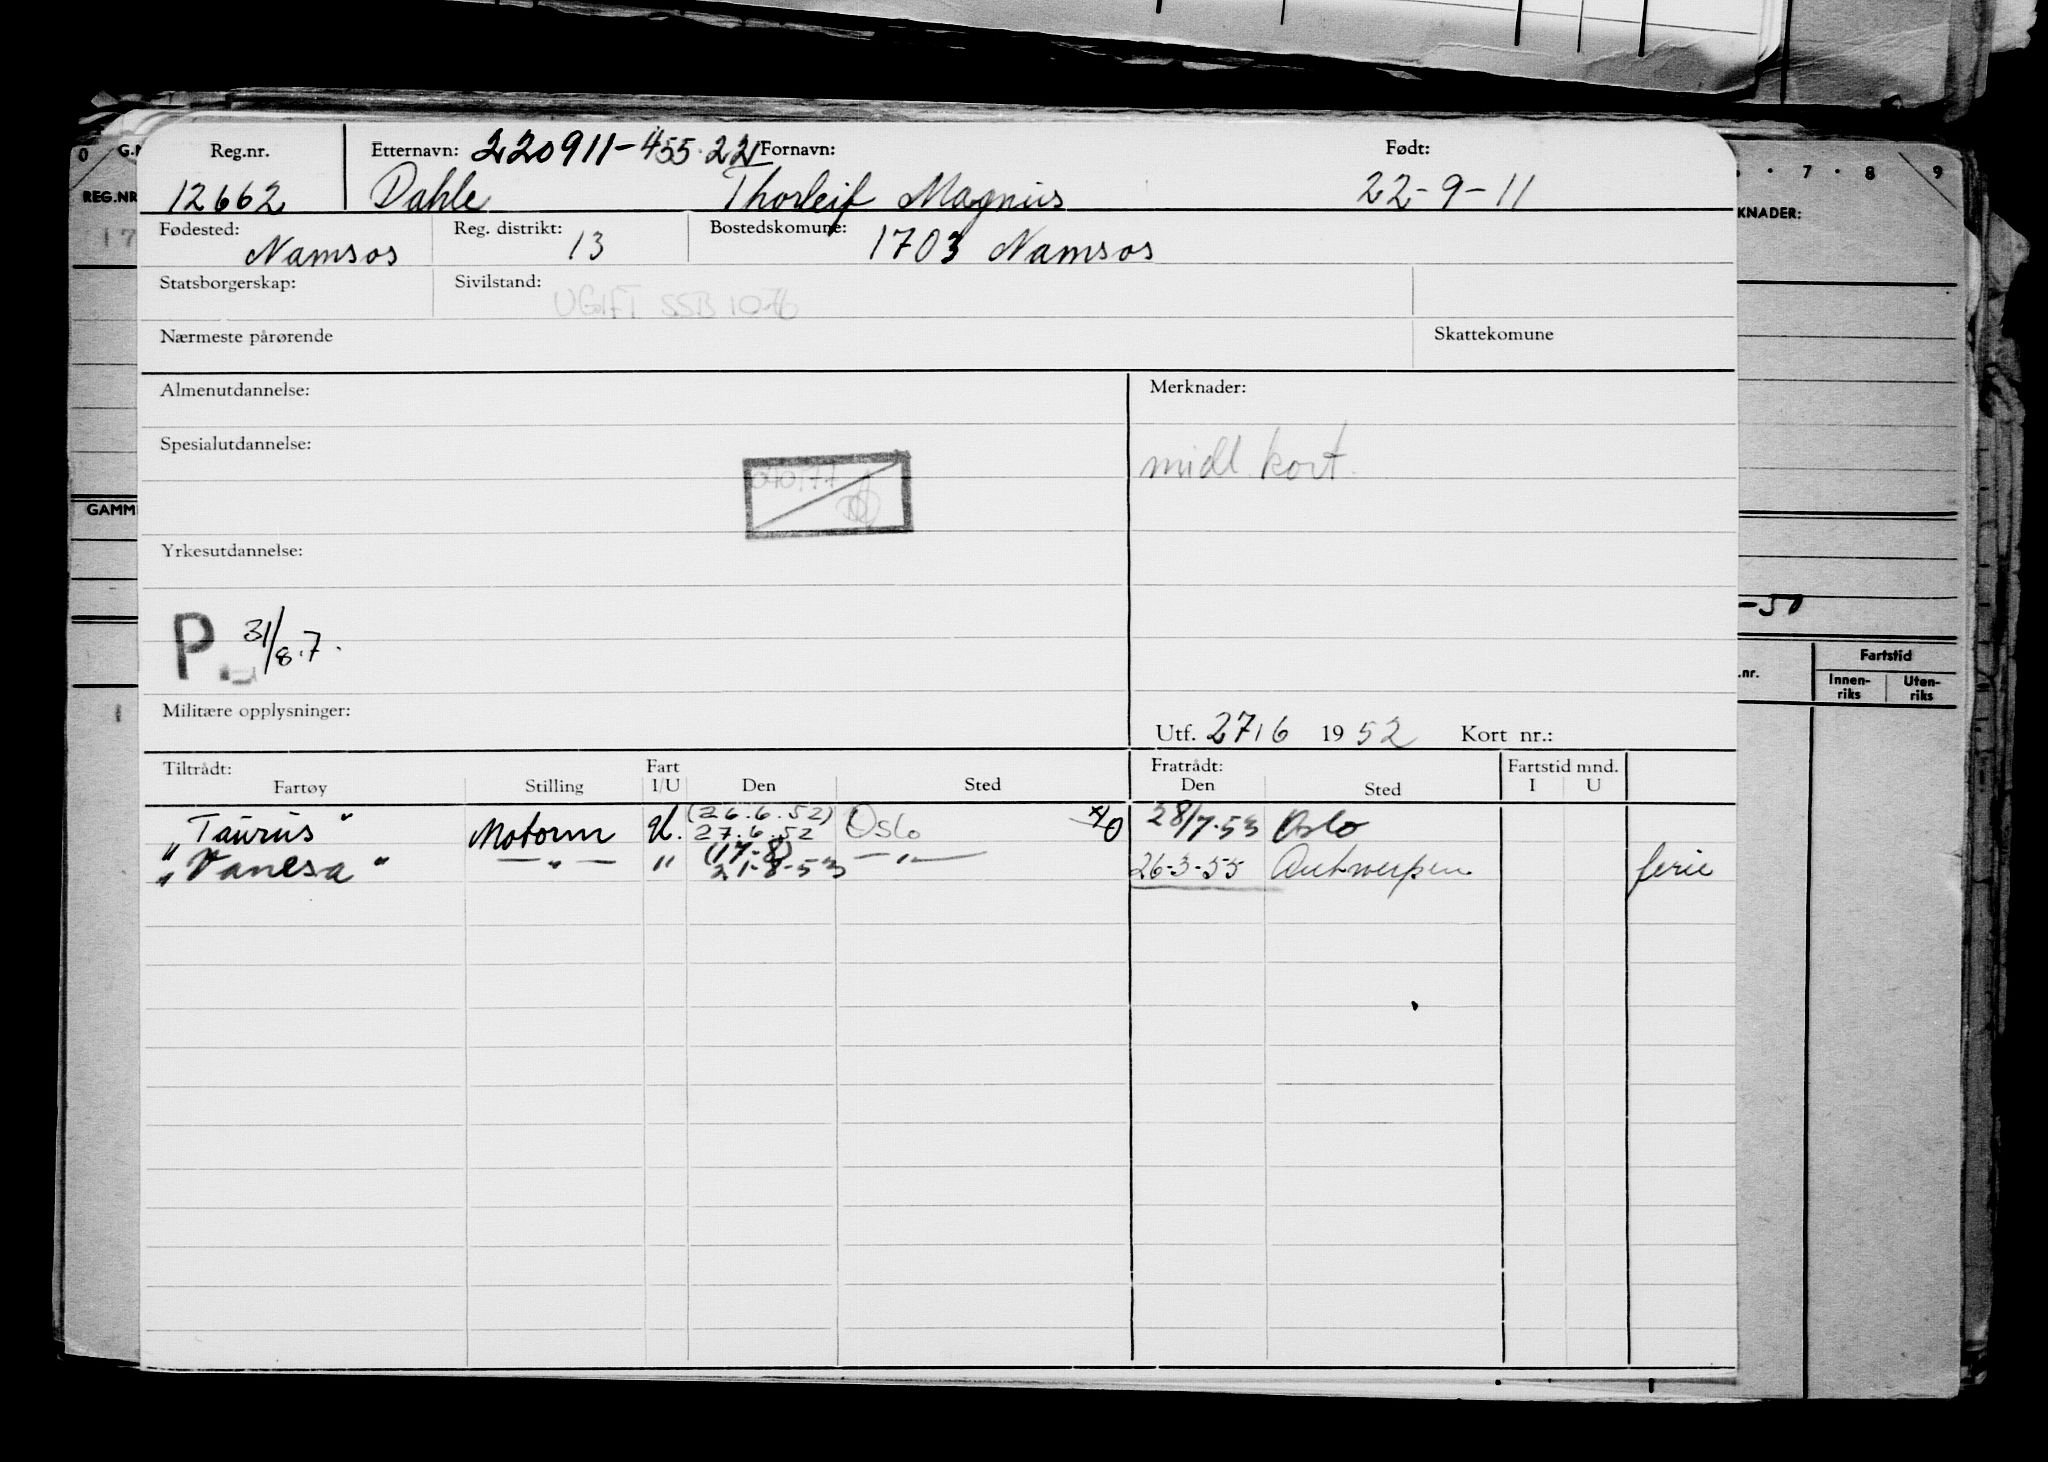 Reg.nr. Etternavn: 220911-455.22 Fornavn: Født:
12662 Dahle Thorleif Magnus 22-9-11
Fødested: Namsos Reg. distrikt: 13 Bostedskomune: 1703 Namsos
Statsborgerskap: Sivilstand: UGIFT SSB 1076
Nærmeste pårørende Skattekomune
Almenutdannelse: Merknader:
Spesialutdannelse: midl. kort.
Yrkesutdannelse:
P. 31/8.7.
Militære opplysninger:
Utf. 27/6 1952 Kort nr.:
Tiltrådt: Fart Fratrådt: Fartstid mnd.
Fartøy Stilling I/U Den Sted Den Sted I U
(26.6.52)
"Taurus" Motorm U. 27.6.52 Oslo 28/7-53 Oslo
(17-8)
"Vanesa" — " — " 21-8-53 — " — 26-3-55 Antwerpen ferie
0 G.N
REG.NR
17
GAMM
1
7 . 8 . 9
KNADER:
-50
.nr. Fartstid
Innen-riks Uten-riks